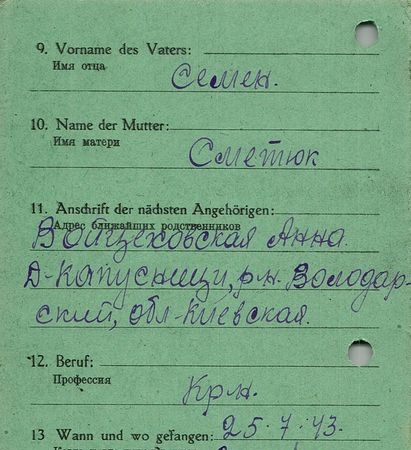 9. Vorname des Vaters:
Имя отца
Семен.
10. Name der Mutter:
Имя матери
Сметюк
11. Anschrift der nächsten Angehörigen:
Адрес ближайших родственников
Войцеховская Анна.
Д-Капусницы, р.н. Володар-
ский, обл-Киевская.
12. Beruf:
Профессия
Крн.
13 Wann und wo gefangen: 25.7.43.